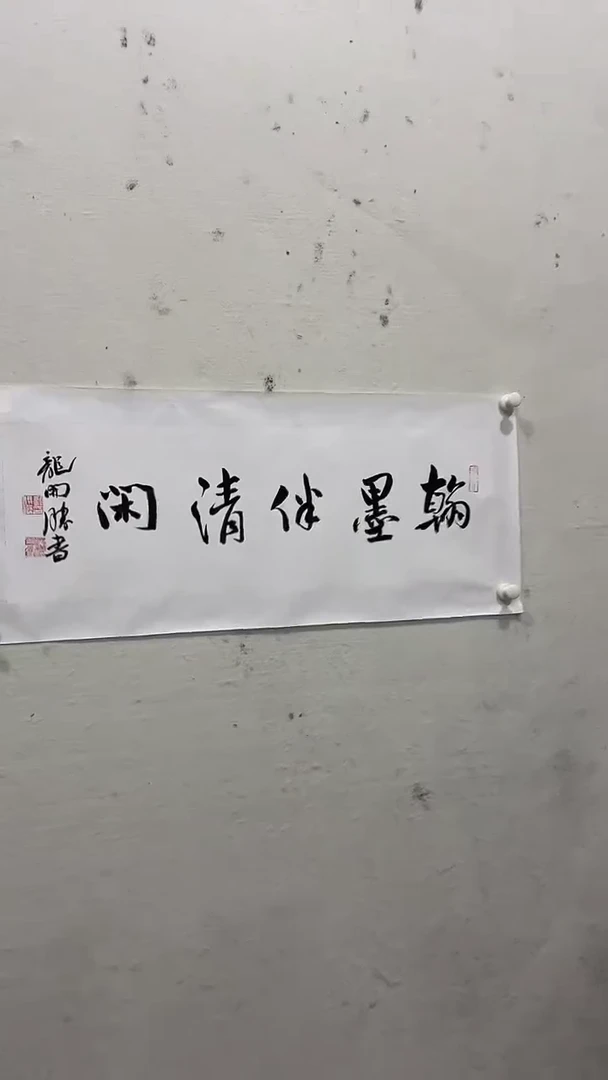 翰墨伴清闲
龍開勝書